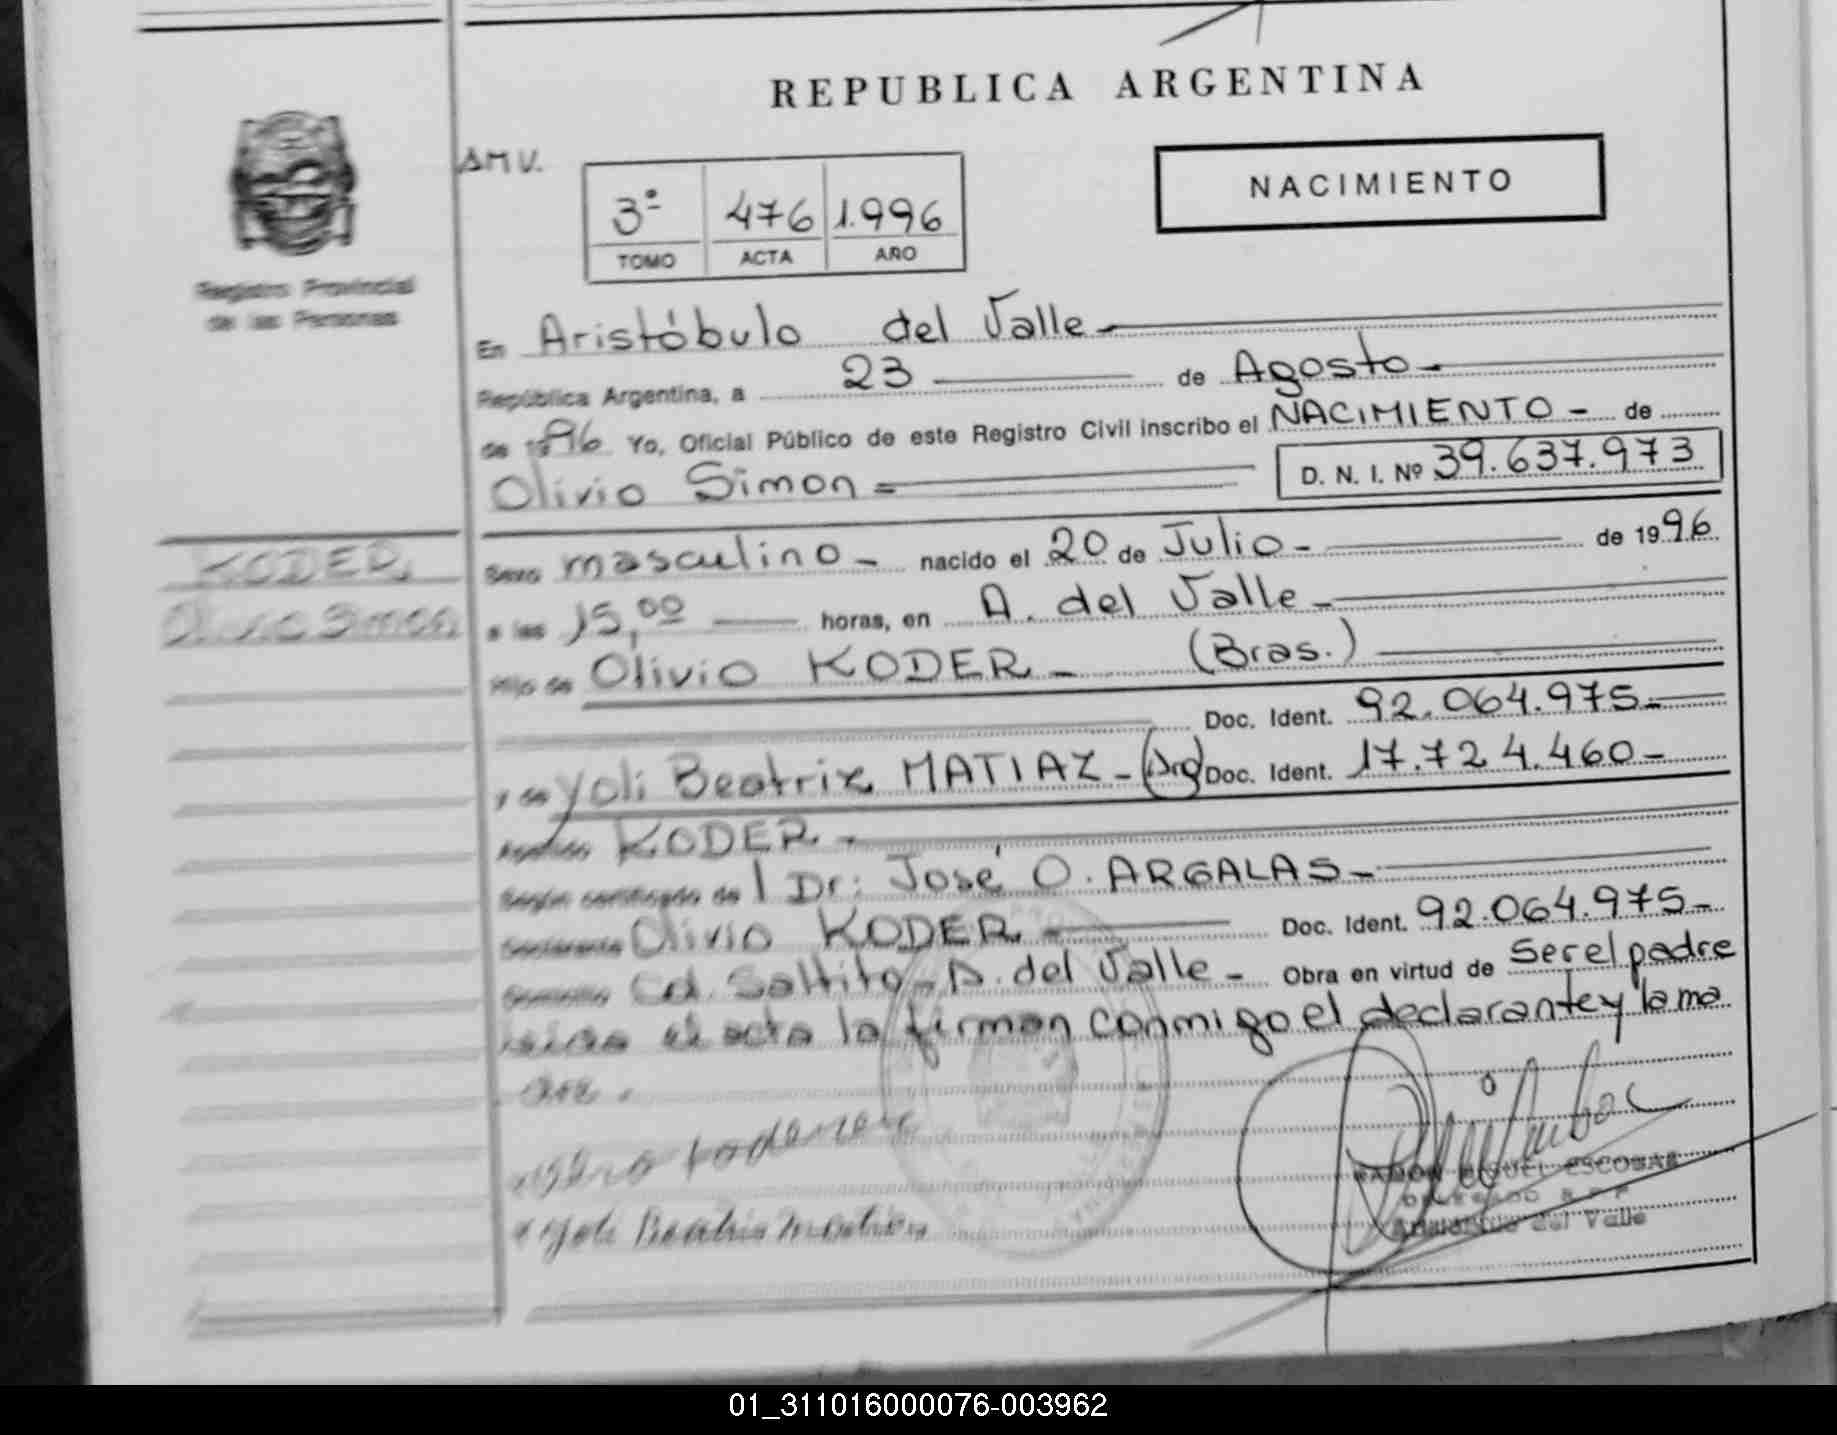 REPUBLICA ARGENTINA
AMV.
NACIMIENTO
3º 476 1.996
TOMO ACTA AÑO
Registro Provincial
de las Personas
En Aristóbulo del Valle
República Argentina, a 23 de Agosto
de 1996 Yo, Oficial Público de este Registro Civil inscribo el NACIMIENTO - de
Olivio Simon = D. N. I. Nº 39.637.973
KODER,
Olivio Simon
Sexo masculino - nacido el 20 de Julio - de 1996
a las 15,00 horas, en A. del Valle -
Hijo de Olivio KODER - (Bras.)
Doc. Ident. 92.064.975-
y de Yoli Beatriz MATIAZ - (Arg) Doc. Ident. 17.724.460-
Apellido KODER -
Según certificado de l Dr: José O. ARGALAS -
Declarante Olivio KODER - Doc. Ident. 92.064.975-
Domicilio Cd. Saltito - A. del Valle - Obra en virtud de ser el padre
el acta la firman conmigo el declarante y la ma
dre.
Yoli Beatriz Matiaz
RAMON MIGUEL ESCOBAR
DELEGADO R.P.P.
Aristóbulo del Valle
01_311016000076-003962